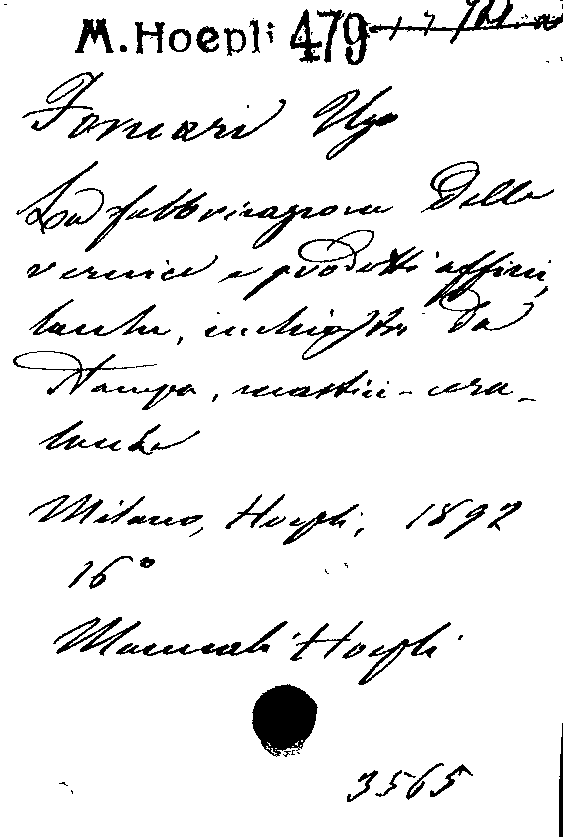 M. Hoepli 479
Fornari Ugo
La fabbricazione delle
vernici e prodotti affini,
lacche, inchiostri da
stampa, mastici - cera-
lacche
Milano, Hoepli, 1892
16°
Manuali Hoepli
3565